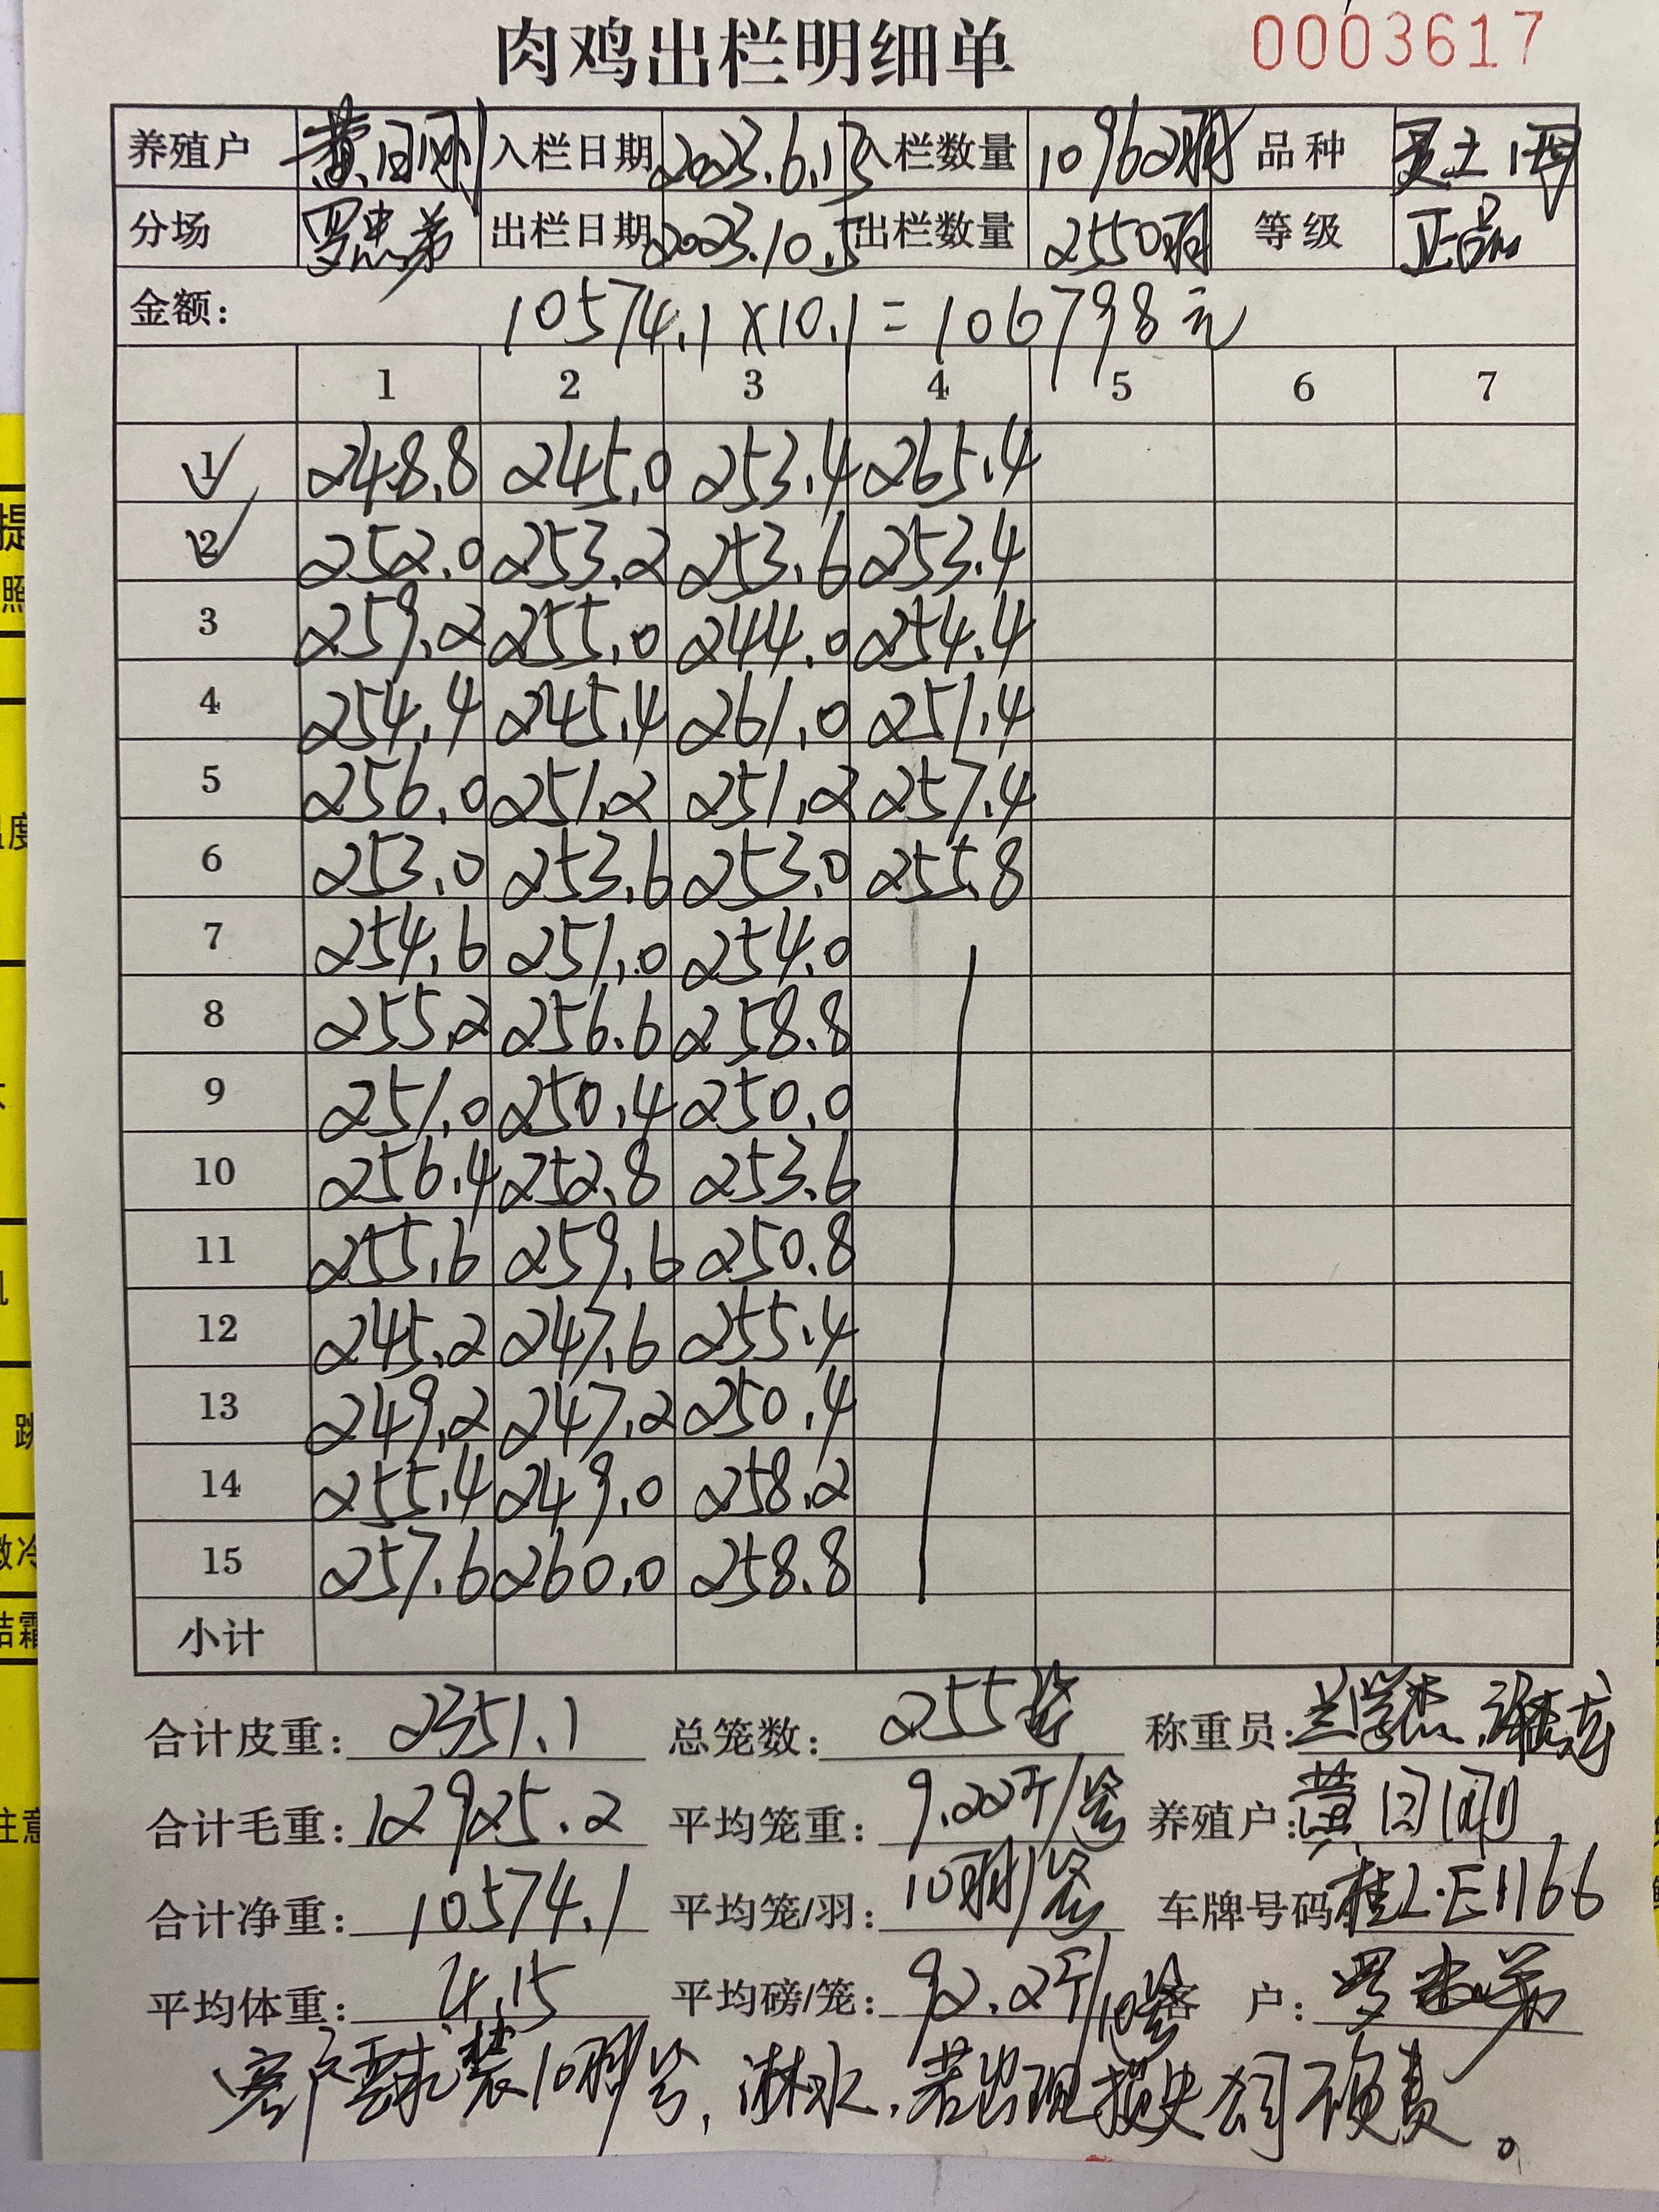 肉鸡出栏明细单 0003617
养殖户 黄日刚 入栏日期 2023.6.13 入栏数量 10962羽 品种
分场 罗忠弟 出栏日期 2023.10.5 出栏数量 2550羽 等级 正品
金额: 10574.1×10.1=106798元
1 2 3 4 5 6 7
1 248.8 245.0 253.4 265.4
2 252.0 253.2 253.6 253.4
3 259.2 255.0 244.0 254.4
4 254.4 245.4 261.0 251.4
5 256.0 251.2 251.2 257.4
6 253.0 253.6 253.0 255.8
7 254.6 251.0 254.0
8 255.2 256.6 258.8
9 251.0 250.4 250.0
10 256.4 252.8 253.6
11 255.6 259.6 250.8
12 245.2 247.6 255.4
13 249.2 247.2 250.4
14 255.4 249.0 258.2
15 257.6 260.0 258.8
小计
合计皮重: 2351.1 总笼数: 255 称重员:
合计毛重: 12925.2 平均笼重: 9.22斤/ 养殖户: 黄日刚
合计净重: 10574.1 平均笼/羽: 10羽/ 车牌号码 桂L·E1166
平均体重: 4.15 平均磅/笼: 92.2斤/10 客户: 罗忠弟
客户要求装10羽/, 淋水, 若出现损失公司不负责。
提
照
温度
跳
冷
结霜
注意